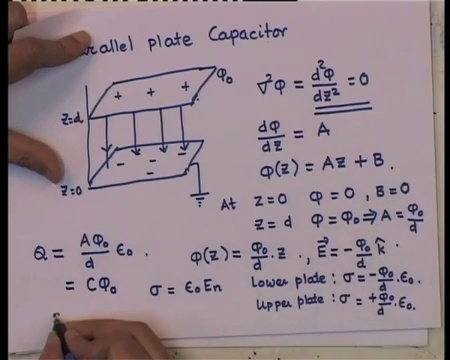 Parallel plate Capacitor
+ + +
Φ₀
Z=d
- - - - -
Z=0
∇²Φ = d²Φ/dz² = 0
dΦ/dz = A
φ(z) = Az + B.
At z=0 φ=0, B=0
z=d φ=φ₀ ⇒ A = φ₀/d
φ(z) = φ₀/d · z ., E⃗ = -φ₀/d k̂.
Q = Aφ₀/d ε₀ .
= Cφ₀ σ = ε₀En
Lower plate : σ = -φ₀/d . ε₀.
Upper plate : σ = +φ₀/d . ε₀.